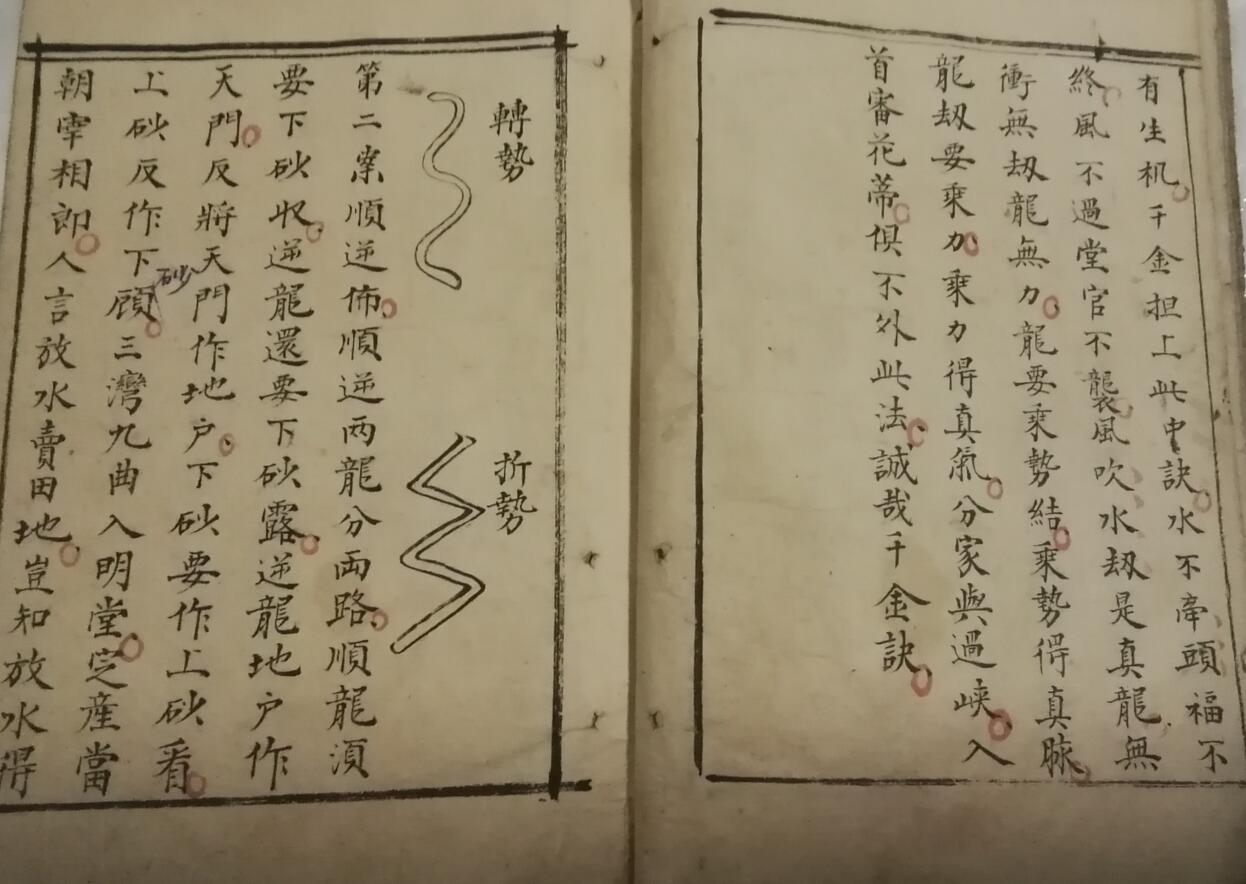 有生机千金担上此中訣水不牽頭福不
終風不過堂官不襲風吹水刼是真龍無
衝無刼龍無力龍要乘勢結乘勢得真脉
龍刼要乘力乘力得真氣分家與過峡入
首審花蒂俱不外此法誠哉千金訣
轉勢
折勢
第二案順逆佈順逆両龍分両路順龍湏
要下砂收逆龍還要下砂露逆龍地户作
天門反將天門作地户下砂要作上砂看
上砂反作下砂顧三灣九曲入明堂定産當
朝宰相郎人言放水賣田地豈知放水得